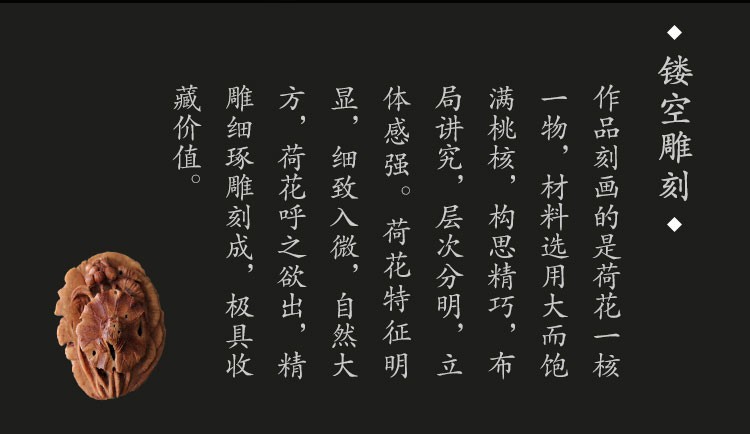 镂空雕刻
作品刻画的是荷花一核
一物，材料选用大而饱
满桃核，构思精巧，布
局讲究，层次分明，立
体感强。荷花特征明
显，细致入微，自然大
方，荷花呼之欲出，精
雕细琢雕刻成，极具收
藏价值。